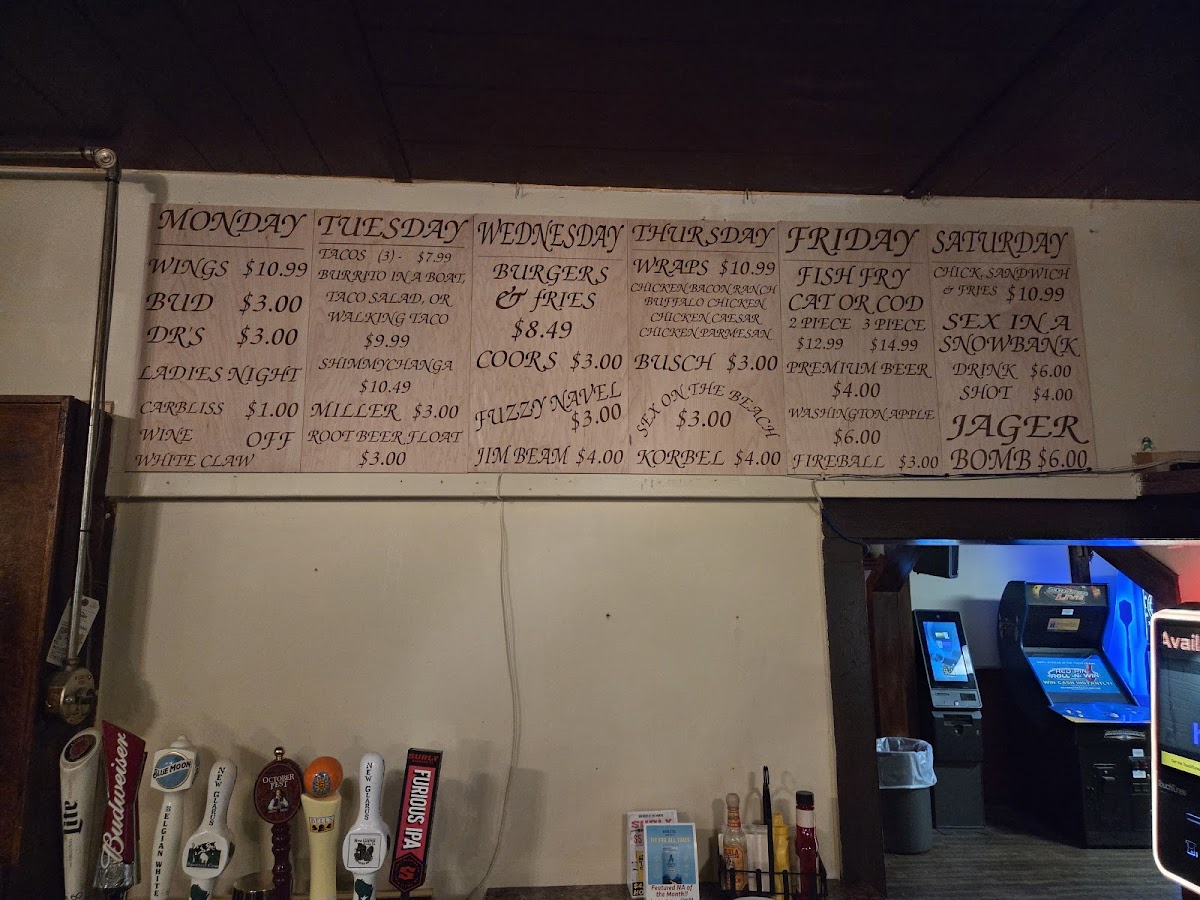 MONDAY
WINGS $10.99
BUD $3.00
DR'S $3.00
LADIES NIGHT
CARBLISS $1.00
WINE OFF
WHITE CLAW
TUESDAY
TACOS (3) - $7.99
BURRITO IN A BOAT,
TACO SALAD, OR
WALKING TACO
$9.99
SHIMMYCHANGA
$10.49
MILLER $3.00
ROOT BEER FLOAT
$3.00
WEDNESDAY
BURGERS
& FRIES
$8.49
COORS $3.00
FUZZY NAVEL
$3.00
JIM BEAM $4.00
THURSDAY
WRAPS $10.99
CHICKEN BACON RANCH
BUFFALO CHICKEN
CHICKEN CAESAR
CHICKEN PARMESAN
BUSCH $3.00
SEX ON THE BEACH
$3.00
KORBEL $4.00
FRIDAY
FISH FRY
CAT OR COD
2 PIECE 3 PIECE
$12.99 $14.99
PREMIUM BEER
$4.00
WASHINGTON APPLE
$6.00
FIREBALL $3.00
SATURDAY
CHICK. SANDWICH
& FRIES $10.99
SEX IN A
SNOWBANK
DRINK $6.00
SHOT $4.00
JAGER
BOMB $6.00
Lite
Budweiser
BLUE MOON
BELGIAN WHITE
NEW GLARUS
OCTOBER
FEST
BELL'S
NEW GLARUS
SURLY
FURIOUS IPA
SURLY
Featured NA of
the Month?
LIVE
ROLL-N-WIN
WIN CASH INSTANTLY!
Avail